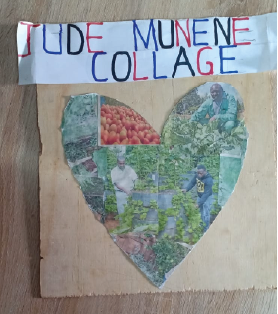 JUDE MUNENE
COLLAGE